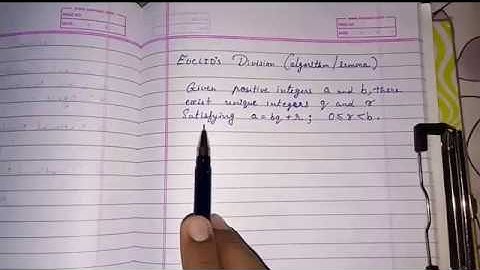 EUCLID'S Division (algorithm/lemma)
Given positive integers a and b, there
exist unique integers q and r
Satisfying a = bq + r ; 0 ≤ r < b.